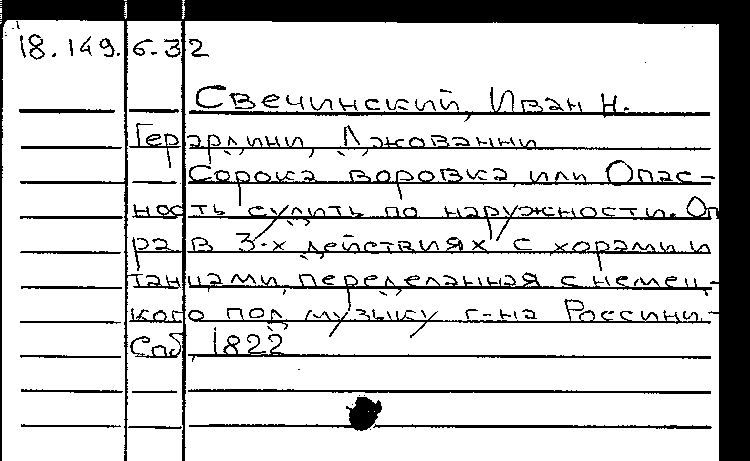 18.149.6.32
Свечинский, Иван Н.
Герардини, Джованни
Сорока воровка, или Опас-
ность судить по наружности. Оп
ра в 3-х действиях с хорами и
танцами, переделанная с немец-
кого под музыку г-на Россини.-
Спб, 1822